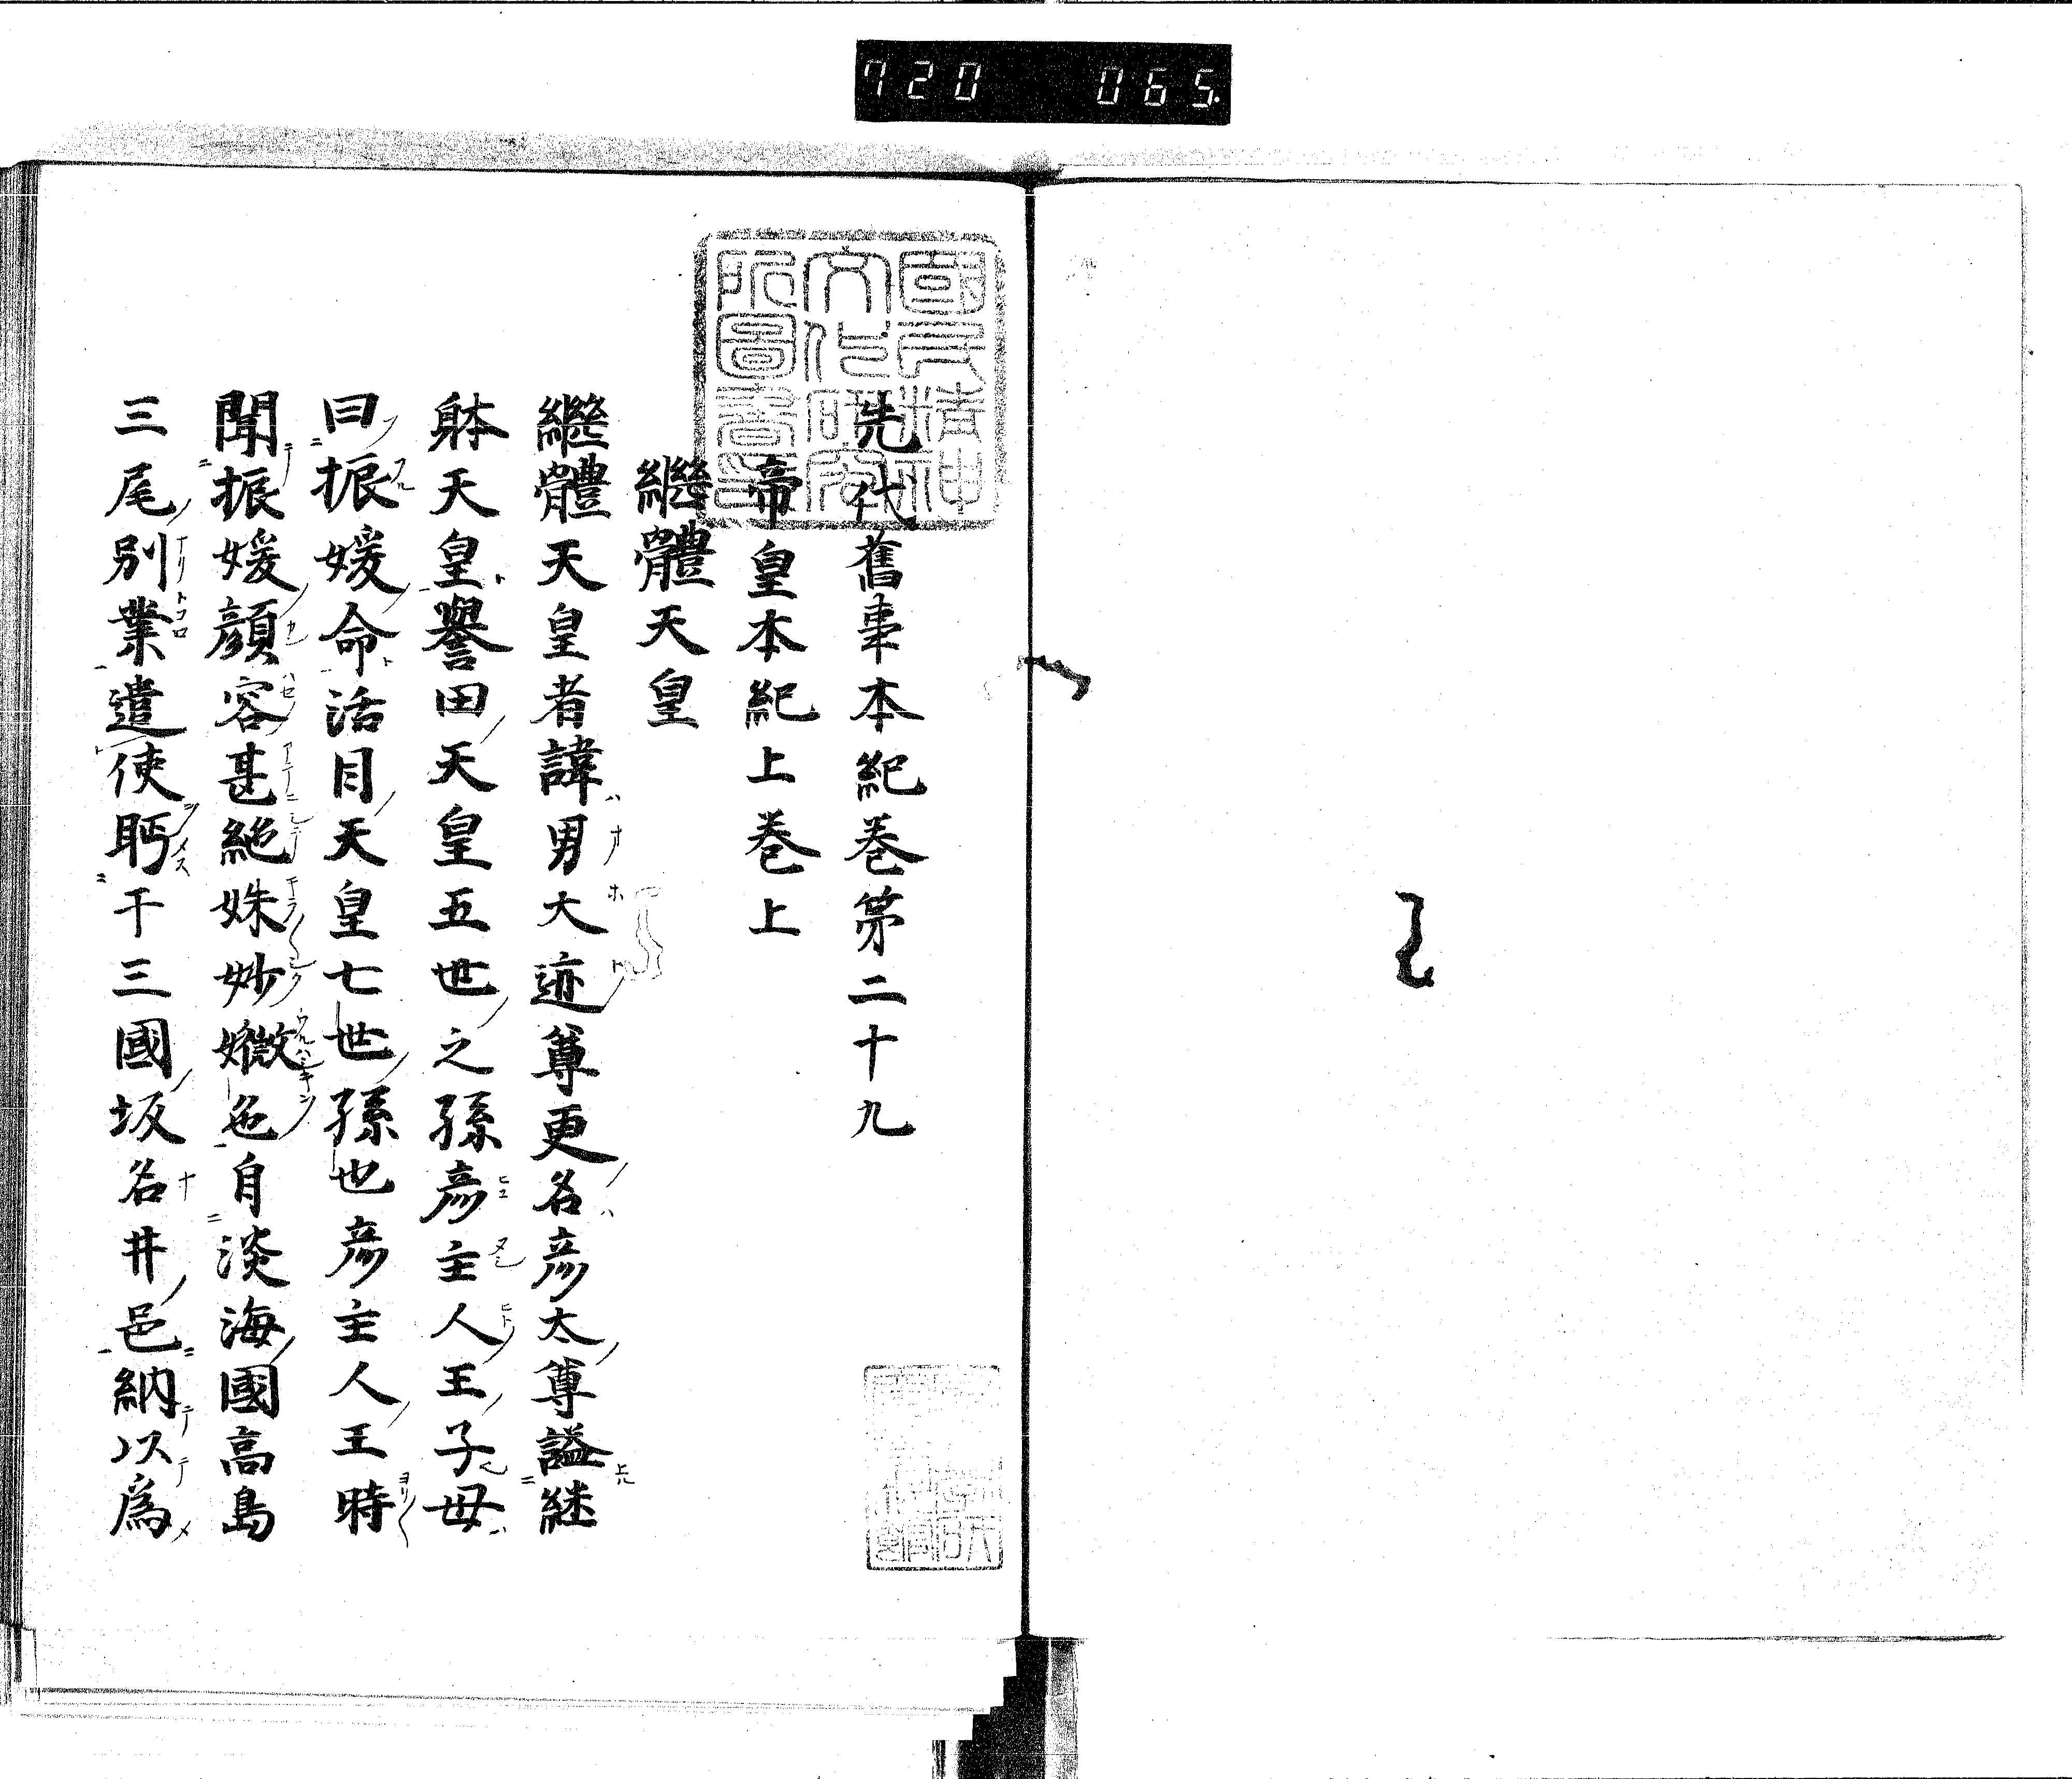 720 065
國民精神文化研究所圖書印
先代舊事本紀巻苐二十九
帝皇本紀上巻上
繼體天皇
繼體天皇者諱男大迹尊更名彦太尊謚継
躰天皇譽田天皇五世之孫彦主人王子母
曰振媛命活目天皇七世孫也彦主人王時
聞振媛顔容甚絶姝妙媺色自淡海國高島
三尾別業遣使聘于三國坂名井邑納以為